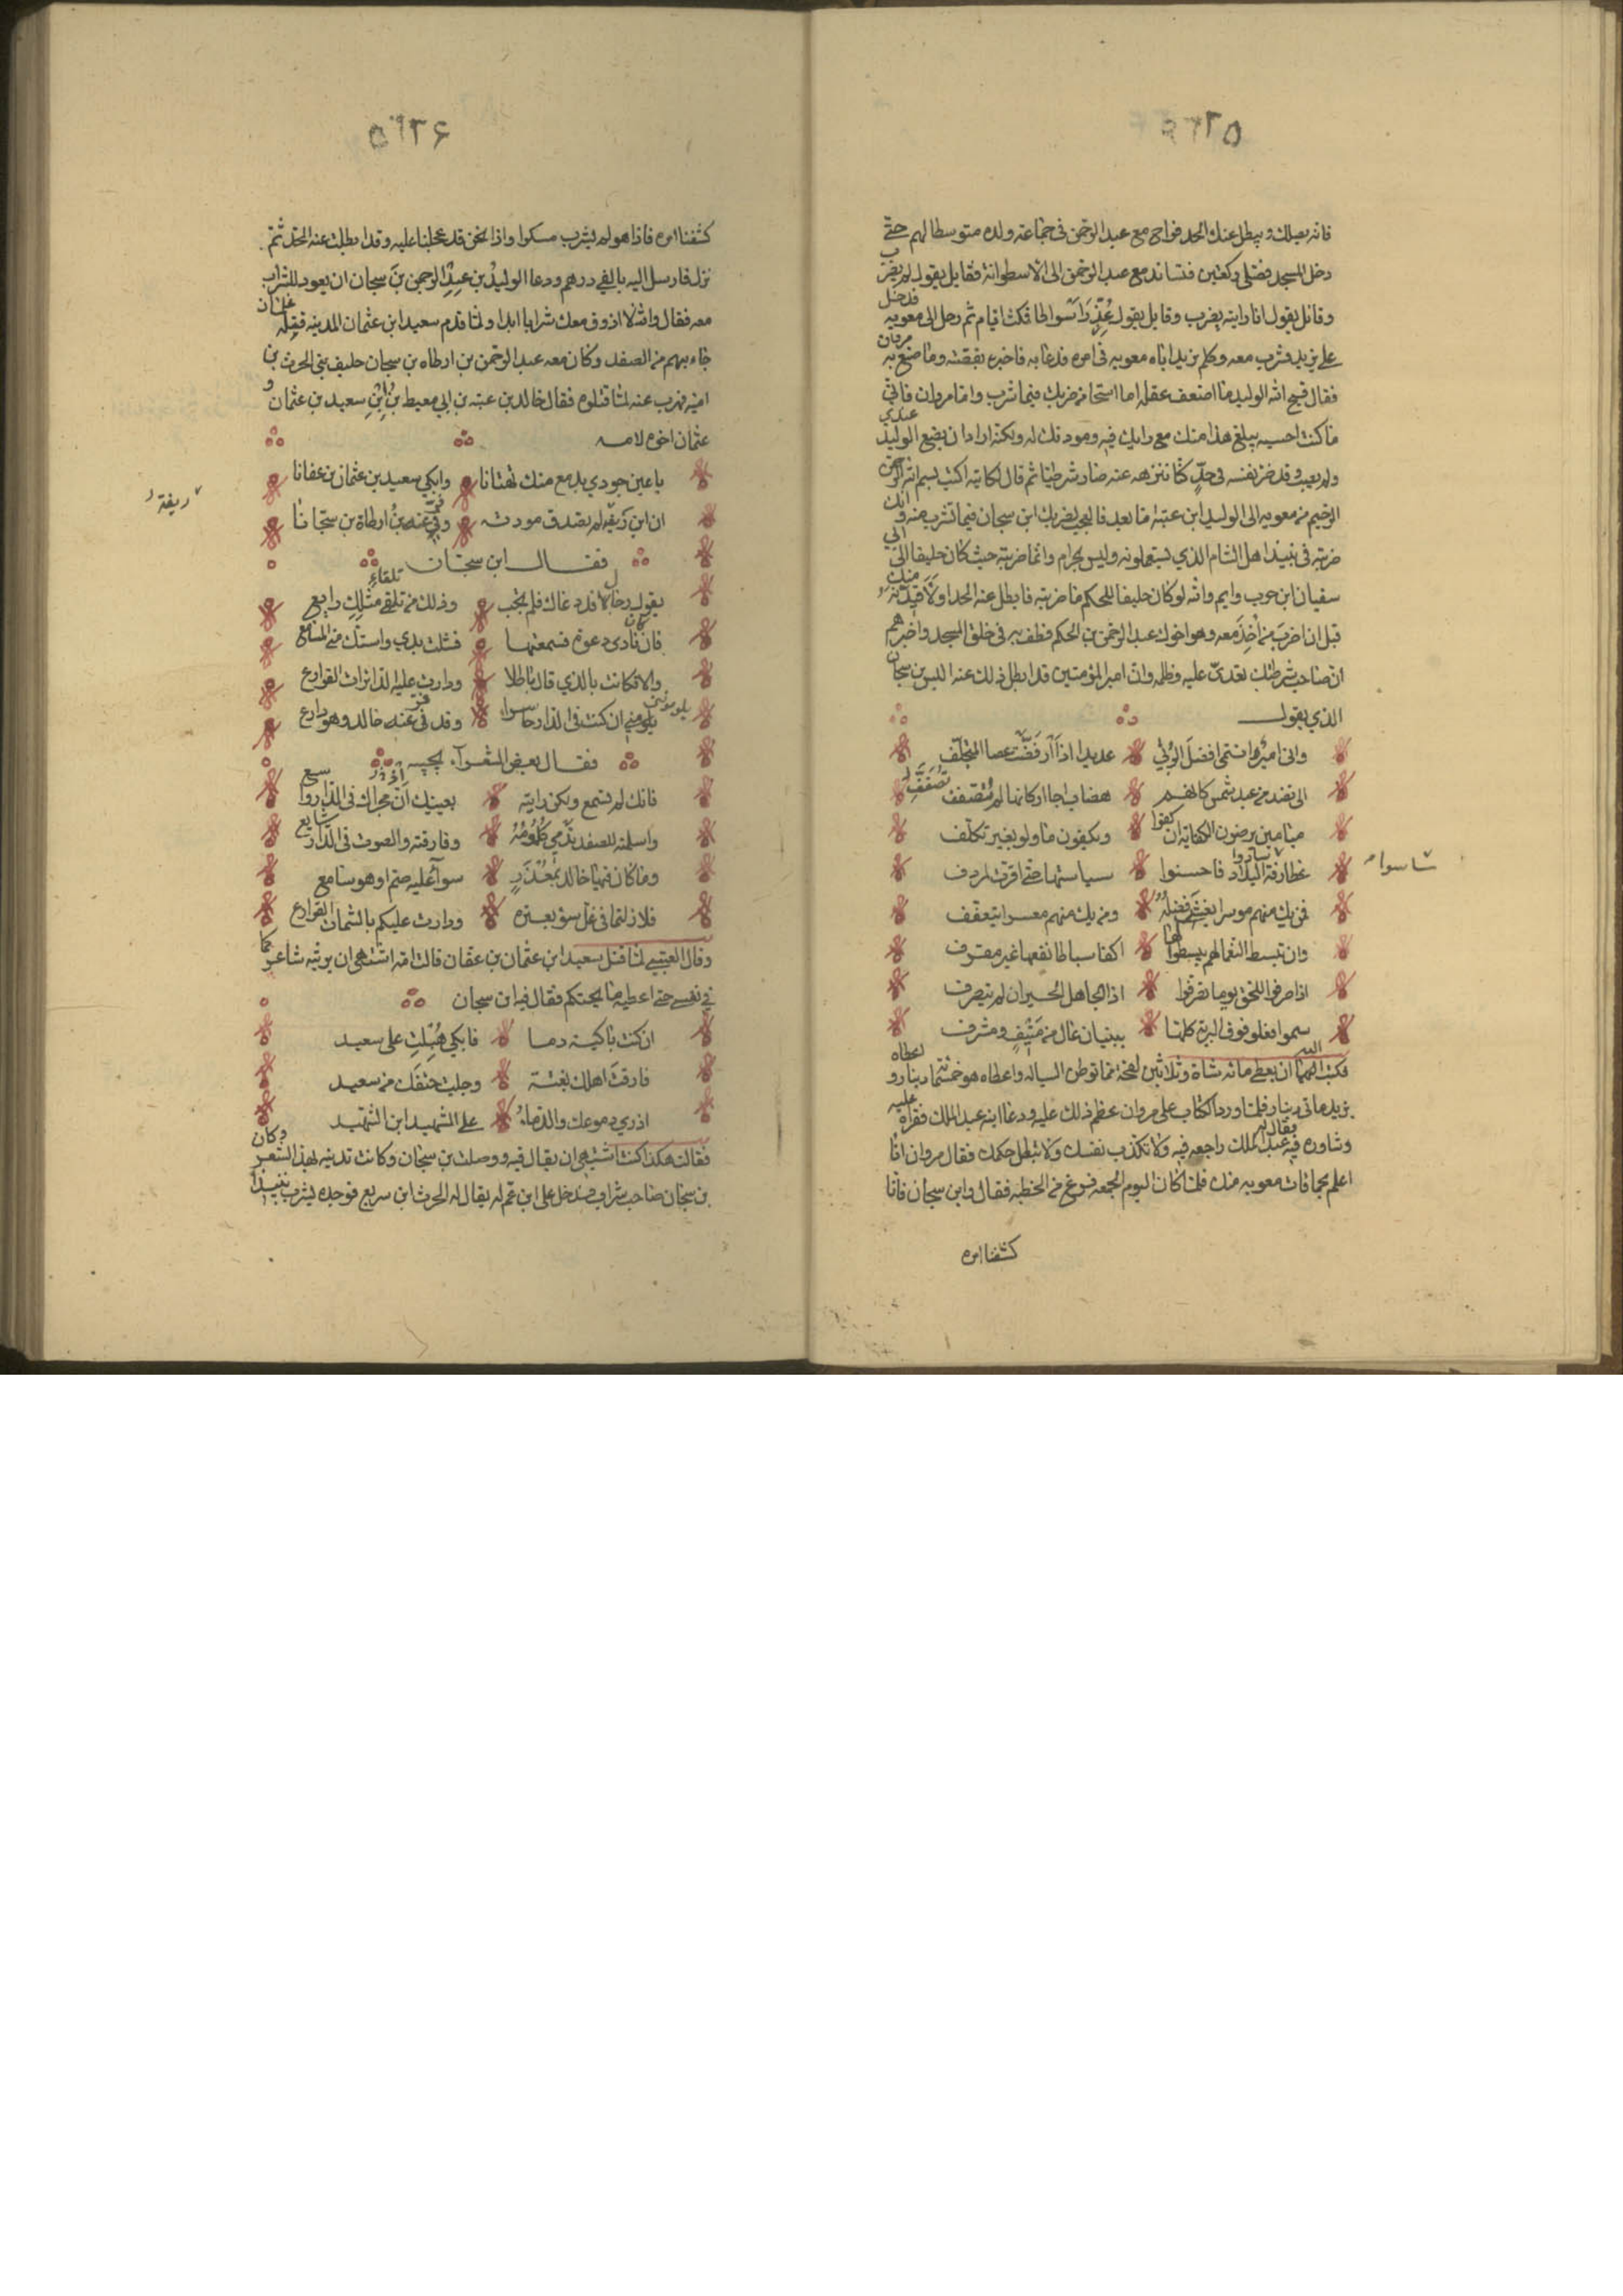 ٥٢٦٥
فانه يصلك ويبطل عنك الحد فراح مع عبد الرحمن في جماعته ولده متوسطا لهم حتى
دخل المسجد فصلى ركعتين فتساند مع عبد الرحمن الى الاسطوانة فقايل يقول لم يضرب
وقائل يقول انا رايته يضرب وقايل يقول عزر اسواطا فمكث ايام ثم رحل الى معويه فدخل
على يزيد فشرب معه وكلم يزيد اباه معويه في امره فدعا به فاخبره بقصته وما صنع به مروان
فقال قبح الله الوليد ما اضعف عقله اما استحا من ضربك فيما شرب واما مروان فاني
ما كنت احسبه يبلغ هذا منك مع رايك فيه ومودتك له ولكنه اراد ان يضع الوليد عندي
ولم يصب وقد صير نفسه في حد كنا ننزهه عنه صار شرطيا ثم قال لكاتبه اكتب بسم الله الرحمن
الرحيم من معويه الى الوليد ابن عتبه اما بعد فالعجب لضربك ابن سيحان فيما تشرب منه وانك
ضربته في نبيذ اهل الشام الذي يستعملونه وليس بحرام وانما ضربته حيث كان حليفا الى ابي
سفيان ابن حرب وايم والله لو كان حليفا للحكم ما ضربته فابطل عنه الحد
قبل ان اضرب من اخذ معه وهو اخوك عبد الرحمن بن الحكم فطف به في حلق المسجد واخبرهم
ان صاحب شرطتك تعدى عليه وظلمه وان امير المؤمنين قد ابطل ذلك عنه اليس بن سيحان
الذي يقول
واني امرؤ انتمى افضل الربي عديدا اذا ارفضت عصا المتحلف
الى نضد من عبد شمس كانهم هضاب اجا اركانها لم تقصف
ميامين يرضون الكفاية ان كفوا ويكفون ما ولو بغير تكلف
غطارفة البلاد فاحسنوا سياستها حتى اقرت لمردف
شاسوا
فمن يك منهم موسرا يغش فضله ومن يك منهم معسرا يتعفف
وان تبسط النعما لهم يبسطوا لها اكفا سباطا نفعها غير مقرف
اذا صرفوا للحق يوما تصرفوا اذا الجاهل الحيران لم يتصرف
سموا فعلو فوق البرية كلها ببنيان عال من منيف ومشرف
فكتب اليه بان يعطى مائه شاة وثلاثين لقحة مما توطن السياله واعطاه هو خمسمائة دينار و
يزيد ماتي دينار فلما ورد الكتاب على مروان عظم ذلك عليه ودعا ابنه عبد الملك فقراه عليه
وشاوره فيه فقال له عبد الملك راجعه فيه ولا تكذب نفسك ولا تبطل حكمك فقال مروان انا
اعلم بحاجات معويه منك فلما كان اليوم الجمعه فرغ من الخطبه فقال وابن سيحان فانا
كشفنا امره
٥٢٦٦
كشفنا امره فاذا هو لم يشرب مسكرا واذا نحن قد عجلنا عليه وقد ابطلت عنه الحد ثم
نزل فارسل اليه بالفي درهم ودعا الوليد بن عبد الرحمن بن سيحان ان يعود للشراب
معه فقال والله لا اذوق معك شرابا ابدا ولما قدم سعيد ابن عثمان المدينه فقتله غلمان
جاء بهم من الصغد وكان معه عبد الرحمن بن ارطاه بن سيحان حليف بني الحرث بن
اميه فهرب عنه لما قتلوه فقال خالد بن عتبه بن ابي معيط يرثي سعيد بن عثمان و
عثمان اخوه لامه
يا عين جودي بدمع منك تهتانا وابكي سعيد بن عثمان بن عفانا
ان ابن زيفة لم تصدق مودته وفر عنه بن ارطاة بن سيحانا
ريفة
فقال ابن سيحان
يقول رجال قد دعاك فلم تجب وذلك من تلقاء مثلك رايع
فان كان نادى دعوة فسمعتها فشلت يدي واستك مني المسامع
والا فكانت بالذي قال باطلا ودارت عليه الدائرات القوارع
يلومني ان كنت في الدار حاسرا وقد فر عنه خالد وهو دارع
فقال بعض الشعراء يجيبه
فانك لم تسمع ولكن رايته بعينيك اذ مجراك في الدار واسع
واسلمته للصغد تدمى كلومه وفارقته والصوت في الدار شايع
وما كان فيها خالد بمعذر سواء عليه صم او هو سامع
فلا زلتما في غل سوء بعبرة ودارت عليكم بالشمات القوارع
وقال العتبي لما قتل سعيد ابن عثمان بن عفان قالت امه اشتهي ان يرثيه شاعر كما
في نفسي حتى اعطيه ما يحتكم فقال فيه ابن سيحان
ان كنت باكية دما فابكي هبلت على سعيد
فارقت اهلك بغتة وجلبت حتفك من سعيد
اذري دموعك والدماء على الشهيد ابن الشهيد
فقالت هكذا كنت اشتهي ان يقال فيه ووصلت بن سيحان وكانت تدنيه لهذا الشعر وكان
بن سيحان صاحب شراب فدخل على ابن عم له يقال له الحرث ابن سريع فوجده يشرب نبيذا